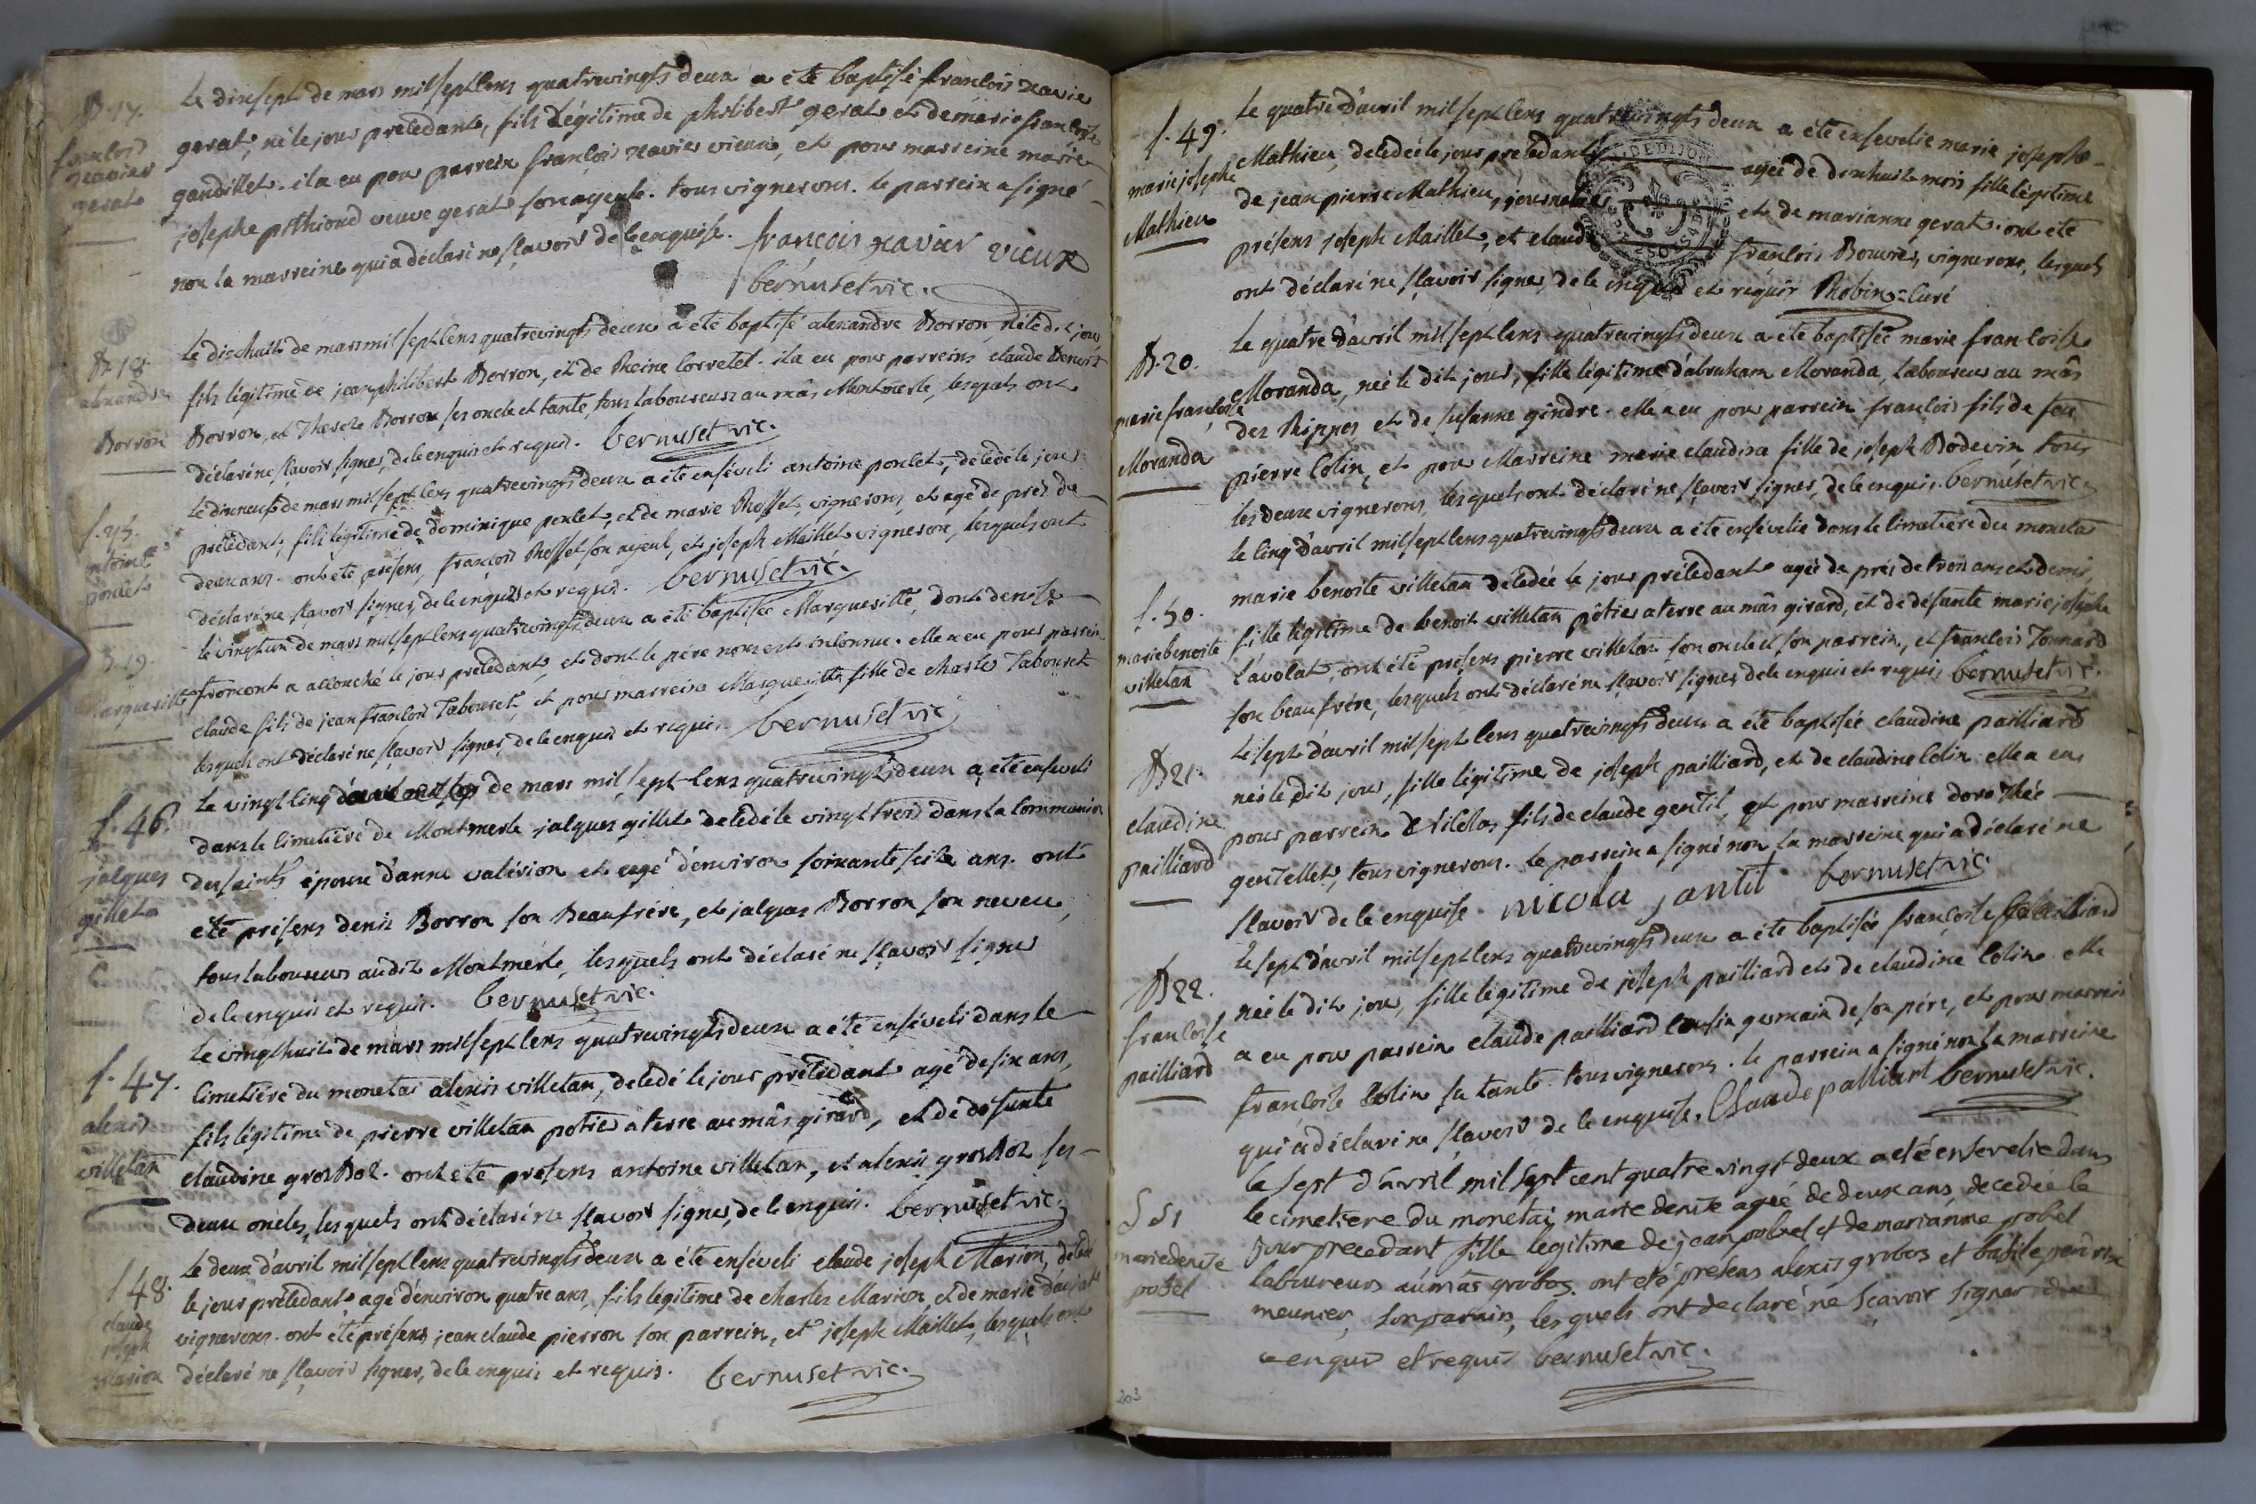 B. 17.
françois
xavier
gerat
Le dixsept de mars mil sept cens quatrevingts deux a été baptisé françois xavier
gerat, né le jour précédant, fils légitime de philibert gerat et de marie françoise
gandillet. il a eu pour parrein françois xavier vieux, et pour marreine marie
josephe pithioud veuve gerat son ayeule. tous vignerons. le parrein a signé
non la marreine qui a déclaré ne sçavoir de ce enquise. françois xavier vieux
bernuset vic.
B. 18.
alexandre
Borron
Le dixhuit de mars mil sept cens quatrevingts deux a été baptisé alexandre Borron, né le dit jour,
fils légitime de jean philibert Borron, et de Reine Corretet. il a eu pour parreins claude Benoit
Borron, et Therese Borron ses oncle et tante, tous laboureurs au mâs Montmerle, lesquels ont
déclaré ne sçavoir signer, de ce enquis et requis. bernuset vic.
f. 45.
antoine
poulet
Le dixneuf de mars mil sept cens quatrevingts deux a été enséveli antoine poulet, décédé le jour
précédant, fils légitime de dominique poulet, et de marie Rosset, vignerons, et agé de près de
deux ans. ont été présens, françois Rosset son ayeul, et joseph Maillet vigneron, lesquels ont
déclaré ne sçavoir signer, de ce enquis et requis. bernuset vic.
B. 19.
Margueritte
Le vingt un de mars mil sept cens quatrevingts deux a été baptisée Margueritte, dont denise
fromont a accouché le jour précédant, et dont le père nous est inconnu. elle a eu pour parrein
claude fils de jean françois Tabouret, et pour marreine Margueritte fille de charle Tabouret
lesquels ont déclaré ne sçavoir signer, de ce enquis et requis. bernuset vic
f. 46.
jacques
gillet
Le vingt cinq de mars mil sept cens quatrevingts deux a été enséveli
dans le cimetière de Montmerle jacques gillet décédé le vingt trois dans la communion
des saints époux d'anne valérion et agé d'environ soixante seize ans. ont
été présens denis Borron son Beaufrère, et jacques Borron son neveu,
tous laboureurs audit Montmerle, lesquels ont déclaré ne sçavoir signer
de ce enquis et requis. bernuset vic.
f. 47.
alexis
villetan
Le vingt huit de mars mil sept cens quatrevingts deux a été enséveli dans le
cimetière du monetai alexis villetan, décédé le jour précédant agé de six ans,
fils légitime de pierre villetan potier a terre au mâs girard, et de défunte
claudine grosBoz. ont été présens antoine villetan, et alexis grosBoz ses
deux oncles, lesquels ont déclaré ne sçavoir signer, de ce enquis. bernuset vic.
f 48.
claude
joseph
Marion
Le deux d'avril mil sept cens quatrevingts deux a été enséveli claude joseph Marion, décédé
le jour précédant agé d'environ quatre ans, fils légitime de charles Marion, et de marie
vignerons. ont été présens jean claude pierron son parrein, et joseph Maillet, lesquels ont
déclaré ne sçavoir signer, de ce enquis et requis. bernuset vic.
f. 49.
marie josephe
Mathieu
Le quatre d'avril mil sept cens quatrevingts deux a été ensevelie marie josephe
Mathieu, décédée le jour précédant agée de dixhuit mois fille légitime
de jean pierre Mathieu, journalier et de marianne gerat. ont été
présens joseph Maillet, et claude françois Bouvier, vignerons, lesquels
ont déclaré ne sçavoir signer, de ce enquis et requis Robin curé
B. 20.
marie françoise
Moranda
Le quatre d'avril mil sept cens quatrevingts deux a été baptisée marie françoise
Moranda, née le dit jour, fille légitime d'abraham Moranda, laboureur au mâs
des Rippes et de susanne gindre. elle a eu pour parrein françois fils de feu
pierre Colin, et pour Marreine marie claudina fille de joseph Bodevin tous
les deux vignerons, lesquels ont déclaré ne sçavoir signer, de ce enquis. bernuset vic.
f. 50.
marie benoite
villetan
Le cinq d'avril mil sept cens quatrevingts deux a été ensévelie dans le cimetière du monetai
marie benoite villetan décédée le jour précédant agée de près de trois ans et demi,
fille légitime de benoit villetan pôtier a terre au mâs girard, et de défunte marie josephe
Cavolat, ont été présens pierre villetan son oncle et son parrein, et françois Tonnard
son beaufrère, lesquels ont déclaré ne sçavoir signer, de ce enquis et requis. bernuset vic.
B 21.
claudine
pailliard
Le sept d'avril mil sept cens quatrevingts deux a été baptisée claudine pailliard
née le dit jour, fille légitime de joseph pailliard, et de claudine Colin. elle a eu
pour parrein Nicolas fils de claude gentil, et pour marreine dorothée
gentellet, tous vignerons. le parrein a signé non la marreine qui a déclaré ne
sçavoir de ce enquise. nicola jantit bernuset vic.
B 22.
françoise
pailliard
Le sept d'avril mil sept cens quatrevingts deux a été baptisée françoise pailliard
née le dit jour, fille légitime de joseph pailliard et de claudine Colin. elle
a eu pour parrein claude pailliard cousin germain de son père, et pour marreine
françoise Colin sa tante. tous vignerons. le parrein a signé non la marreine
qui a déclaré ne sçavoir de ce enquise. Claude palliart bernuset vic.
S 51
marie denise
pobel
Le sept d'avril mil sept cent quatre vingt deux a eté ensevelie dans
le cimetiere du monetai marie denise agée de deux ans, decedée le
jour precedant fille legitime de jean pobel et de marianne pobel
laboureurs au mâs grobos. ont eté presens alexis grobos et basile
meunier, son parain, lesquels ont declaré ne scavoir signer de
ce enquis et requis bernuset vic.
203